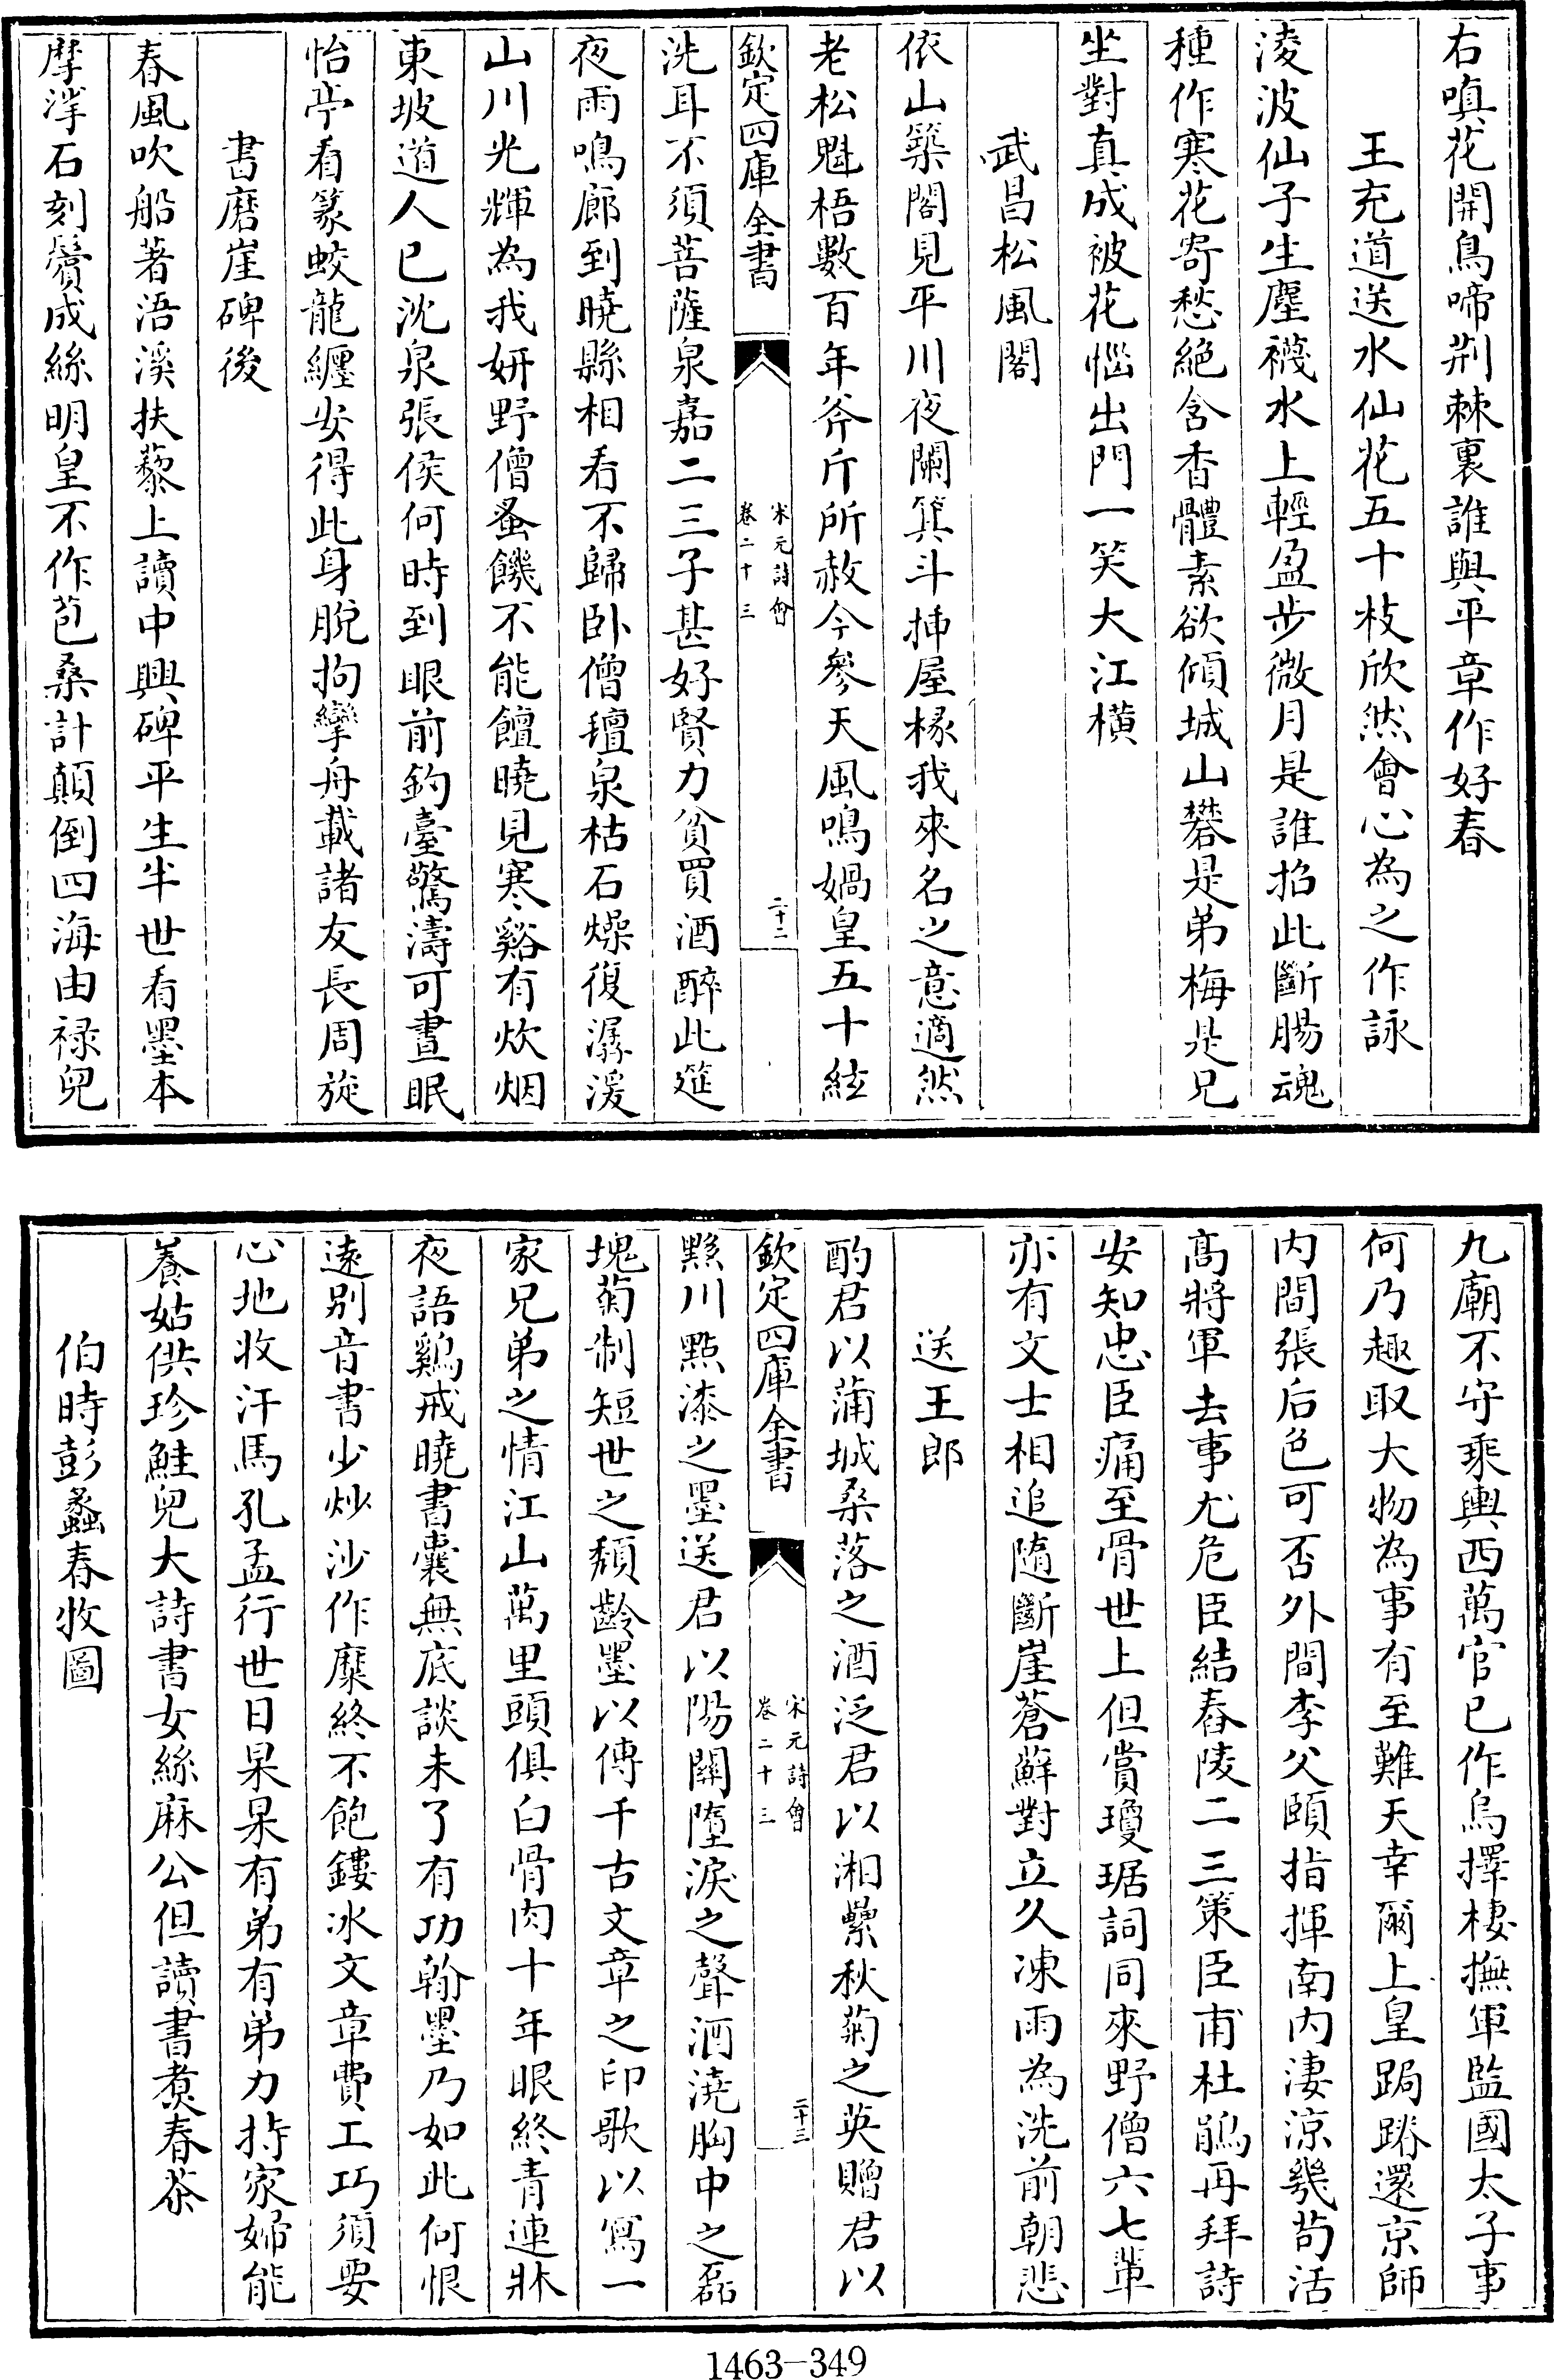 右嗔花開鳥啼荆棘裏誰與平章作好春
王充道送水仙花五十枝欣然會心為之作詠
淩波仙子生塵襪水上輕盈步微月是誰招此斷腸魂
種作寒花寄愁絶含香體素欲傾城山礬是弟梅是兄
坐對真成被花惱出門一笑大江横
武昌松風閣
依山築閣見平川夜闌箕斗挿屋椽我來名之意適然
老松魁梧數百年斧斤所赦今參天風鳴媧皇五十絃
欽定四庫全書
宋元詩會
卷二十三
二十二
洗耳不須菩薩泉嘉二三子甚好賢力貧買酒醉此筵
夜雨鳴廊到曉縣相看不歸卧僧氊泉枯石燥復潺湲
山川光輝為我妍野僧蚤饑不能饘曉見寒谿有炊烟
東坡道人已沈泉張侯何時到眼前釣臺驚濤可晝眠
怡亭看篆蛟龍纒安得此身脫拘攣舟載諸友長周旋
書磨崖碑後
春風吹船著浯溪扶藜上讀中興碑平生半世看墨本
摩挲石刻鬢成絲明皇不作苞桑計顛倒四海由祿兒
九廟不守乘輿西萬官已作烏擇棲撫軍監國太子事
何乃趣取大物為事有至難天幸爾上皇跼蹐還京師
内間張后色可否外間李父頤指揮南内淒涼幾茍活
高將軍去事尤危臣結舂陵二三策臣甫杜鵑再拜詩
安知忠臣痛至骨世上但賞瓊琚詞同來野僧六七輩
亦有文士相追隨斷崖蒼蘚對立久凍雨為洗前朝悲
送王郎
酌君以蒲城桑落之酒泛君以湘纍秋菊之英贈君以
欽定四庫全書
宋元詩會
卷二十三
二十三
黟川點漆之墨送君以陽關墮淚之聲酒澆胸中之磊
塊菊制短世之頽齡墨以傳千古文章之印歌以寫一
家兄弟之情江山萬里頭俱白骨肉十年眼終青連牀
夜語鷄戒曉書囊無底談未了有功翰墨乃如此何恨
遠别音書少炒沙作糜終不飽鏤冰文章費工巧須要
心地收汗馬孔孟行世日杲杲有弟有弟力持家婦能
養姑供珍鮭兒大詩書女絲麻公但讀書煑春茶
伯時彭蠡春牧圖
1463-349